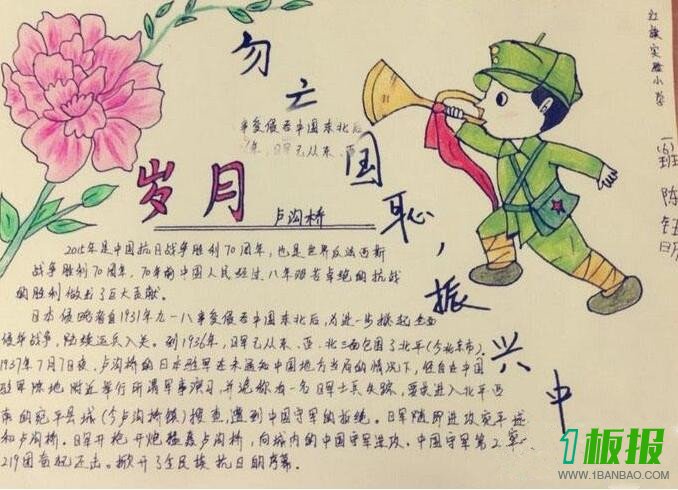 勿亡国耻，振兴中
事变侵吞中国东北后
年，日军已从东、西
岁月
卢沟桥
红旗实验小学
一(6)班 陈钰
2015年是中国抗日战争胜利70周年，也是世界反法西斯
战争胜利70周年，70年前中国人民经过八年艰苦卓绝的抗战
的胜利做出了巨大贡献。
日本侵略者自1931年九一八事变侵吞中国东北后，为进一步挑起全面
侵华战争，陆续运兵入关。到1936年，日军已从东、西、北三面包围了北平(今北京市)。
1937年7月7日夜，卢沟桥的日本驻军在未通知中国地方当局的情况下，径自在中国
驻军阵地附近举行所谓军事演习，并诡称有一名日军士兵失踪，要求进入北平西
南的宛平县城(今卢沟桥镇)搜查，遭到中国守军的拒绝。日军随即进攻宛平城
和卢沟桥。日军开枪开炮猛轰卢沟桥，向城内的中国守军进攻。中国守军第2军
219团奋起还击。掀开了全民族抗日的序幕。
1板报
WWW.1BANBAO.COM